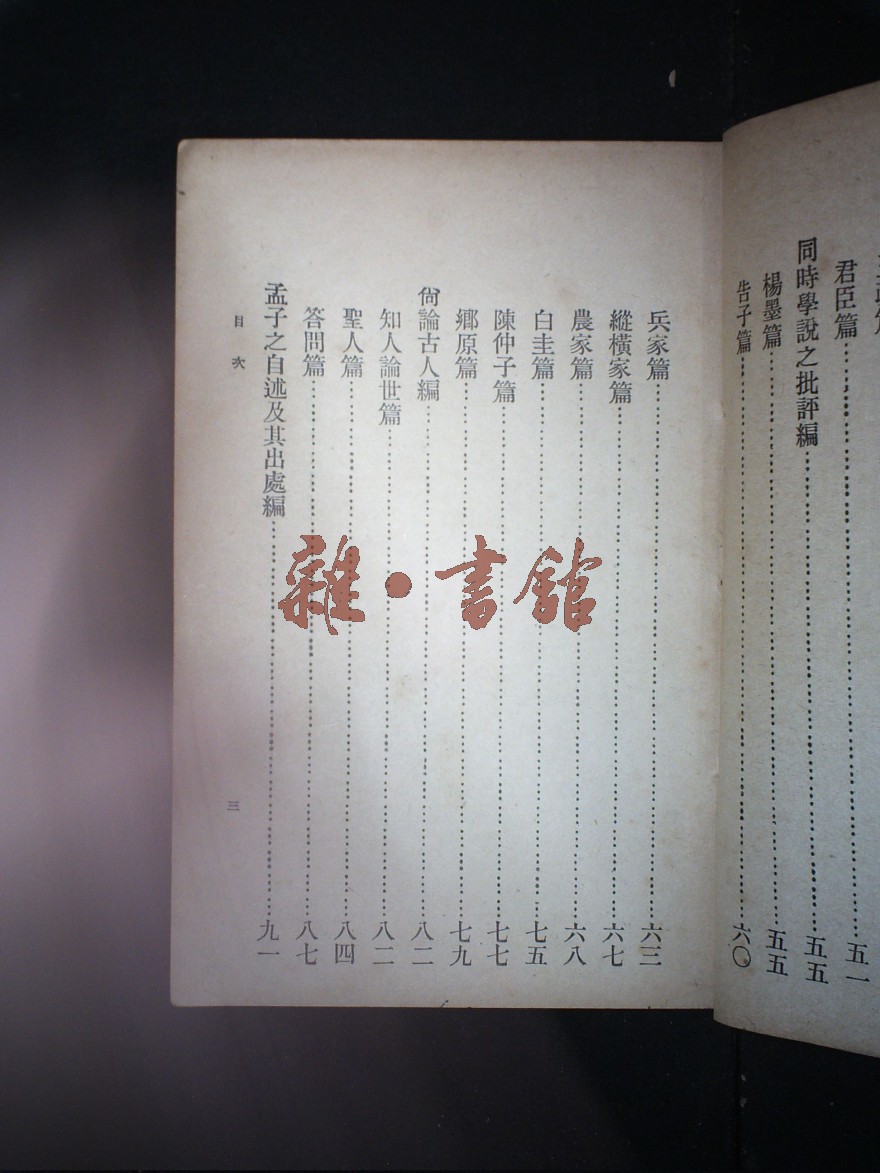 君臣篇……五一
同時學說之批評編……五五
楊墨篇……五五
告子篇……六〇
兵家篇……六三
縱橫家篇……六七
農家篇……六八
白圭篇……七五
陳仲子篇……七七
鄉原篇……七九
尙論古人編……八二
知人論世篇……八二
聖人篇……八四
答問篇……八七
孟子之自述及其出處編……九一
目次
三
雜·書館